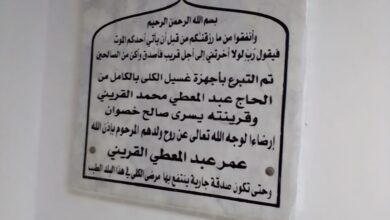 بسم الله الرحمن الرحيم
وأنفقوا من ما رزقنكم من قبل أن يأتي أحدكم الموت
فيقول رب لولا أخرتني إلى أجل قريب فأصدق وأكن من الصالحين
تم التبرع بأجهزة غسيل الكلى بالكامل من
الحاج عبد المعطي محمد القريني
وقرينته يسرى صالح خصوان
إرضاءا لوجه الله تعالى عن روح ولدهم المرحوم بإذن الله
عمر عبد المعطي القريني
وحتى تكون صدقة جارية ينتفع بها مرضى الكلى في هذا البلد الطيب